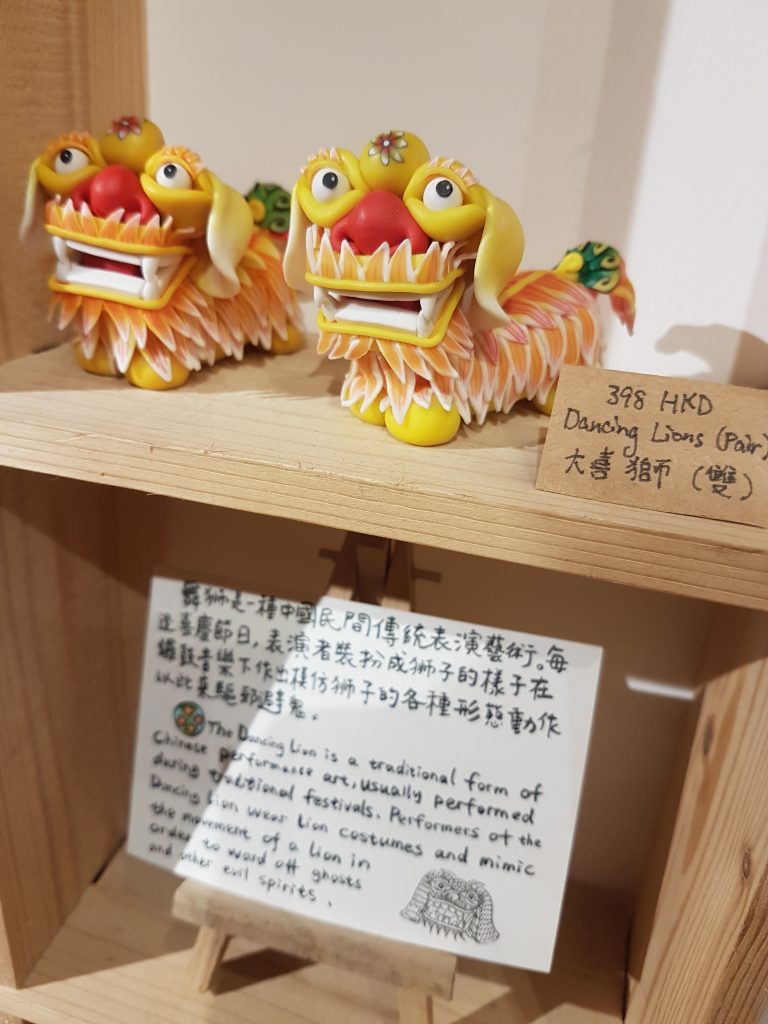 398 HKD
Dancing Lions (Pair)
大喜獅（雙）
舞獅是一種中國民間傳統表演藝術。每
逢喜慶節日，表演者裝扮成獅子的樣子在
鑼鼓音樂下作出模仿獅子的各種形態動作
以此來驅邪避鬼。
The Dancing Lion is a traditional form of
Chinese performance art, usually performed
during traditional festivals. Performers of the
Dancing Lion wear Lion costumes and mimic
the movement of a lion in
order to ward off ghosts
and other evil spirits.